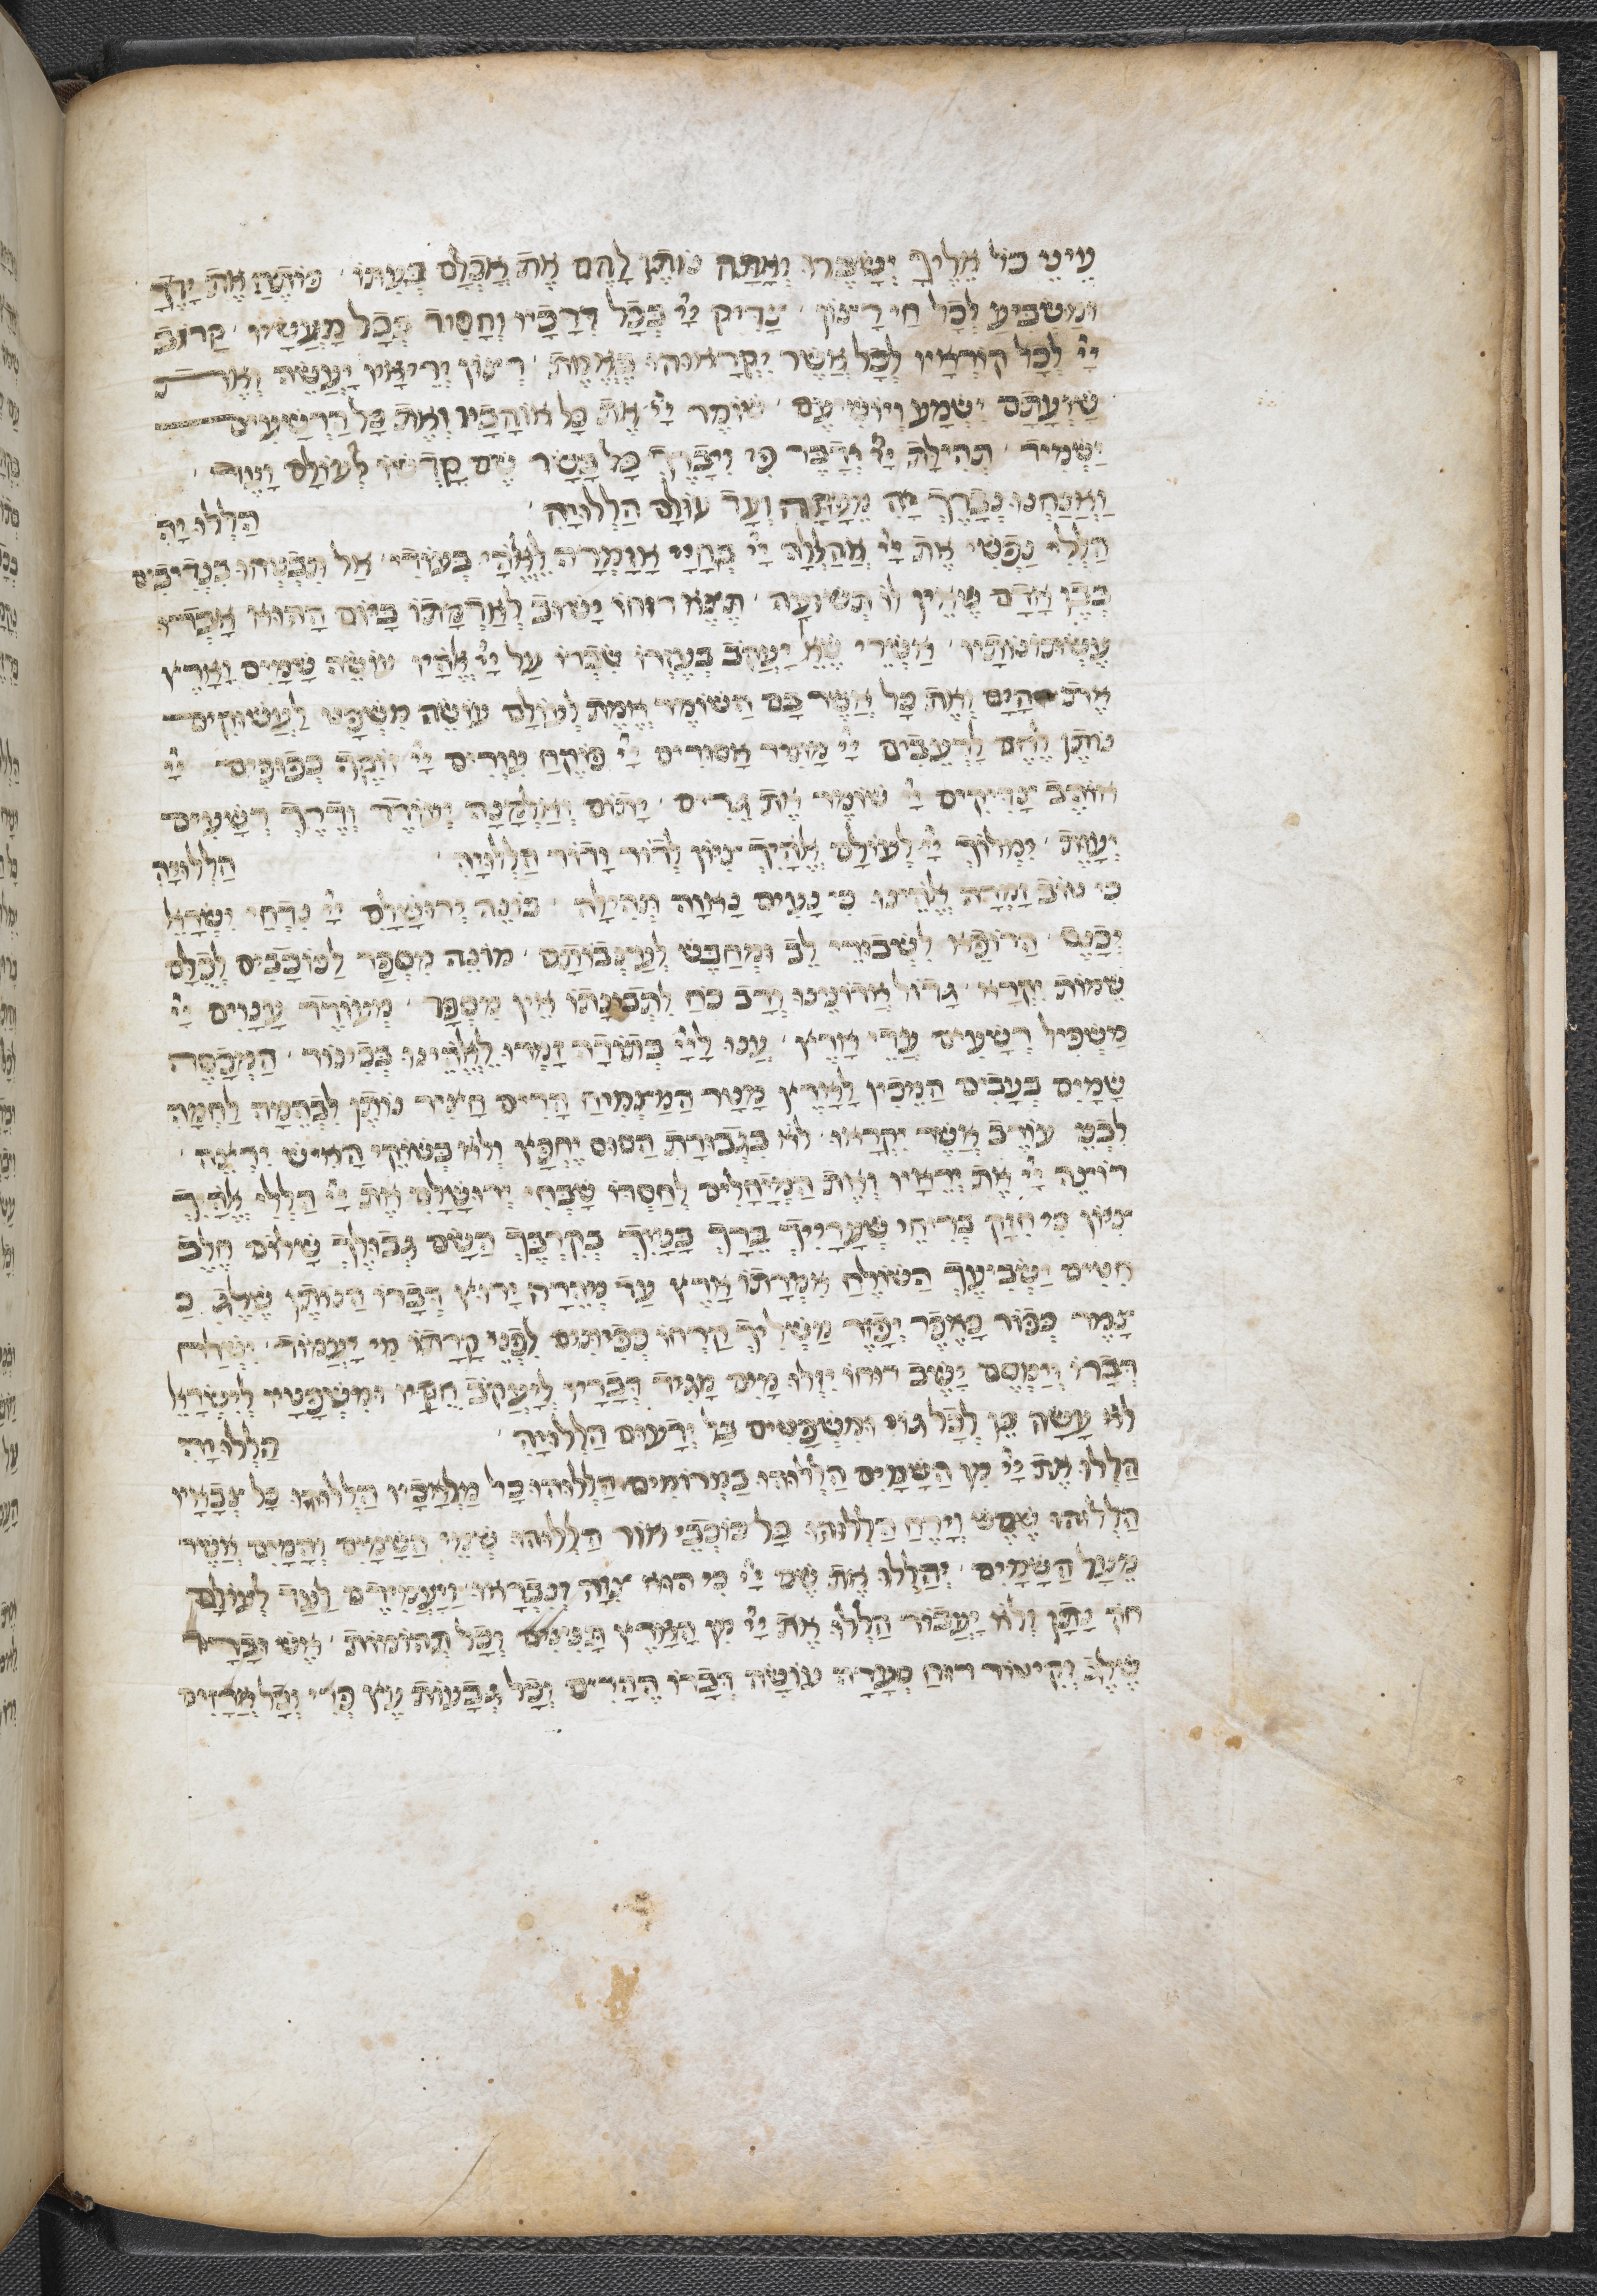 עֵינֵי כוֹל אֵלֶיךָ יְשַׂבֵּרוּ וְאַתָּה נוֹתֵן לָהֶם אֶת אָכְלָם בְּעִתּוֹ׳ פּוֹתֵחַ אֶת יָדֶךָ
וּמַשְׂבִּיעַ לְכָל חַי רָצוֹן׳ צַדִּיק יְיָ בְּכָל דְּרָכָיו וְחָסִיד בְּכָל מַעֲשָׂיו׳ קָרוֹב
יְיָ לְכָל קוֹרְאָיו לְכָל אֲשֶׁר יִקְרָאוּהוּ בֶאֱמֶת׳ רְצוֹן יְרֵיאָיו יַעֲשֶׂה וְאֶת
שַׁוְעָתָם יִשְׁמַע וְיוֹשִׁיעֵם׳ שׁוֹמֵר יְיָ אֶת כָּל אוֹהֲבָיו וְאֶת כָּל הָרְשָׁעִים
יַשְׁמִיד׳ תְּהִילַּת יְיָ יְדַבֶּר פִּי וִיבָרֵךְ כָּל בָּשָׂר שֵׁם קָדְשׁוֹ לְעוֹלָם וָעֶד׳
וַאֲנַחְנוּ נְבָרֵךְ יָהּ מֵעַתָּה וְעַד עוֹלָם הַלְלוּיָהּ׳ הַלְלוּיָהּ
הַלְלִי נַפְשִׁי אֶת יְיָ אֲהַלְלָה יְיָ בְּחַיָּיי אֲזַמְּרָה לֵאלֹהַי בְּעוֹדִי׳ אַל תִּבְטְחוּ בִנְדִיבִים
בְּבֶן אָדָם שֶׁאֵין לוֹ תְשׁוּעָה׳ תֵּצֵא רוּחוֹ יָשׁוּב לְאַדְמָתוֹ בַּיּוֹם הַהוּא אָבְדוּ
עֶשְׁתּוֹנוֹתָיו׳ אַשְׁרֵי שֶׁאֵל יַעֲקֹב בְּעֶזְרוֹ שִׂבְרוֹ עַל יְיָ אֱלֹהָיו עוֹשֶׂה שָׁמַיִם וָאָרֶץ
אֶת הַיָּם וְאֶת כָּל אֲשֶׁר בָּם הַשּׁוֹמֵר אֱמֶת לְעוֹלָם עוֹשֶׂה מִשְׁפָּט לַעֲשׁוּקִים
נוֹתֵן לֶחֶם לָרְעֵבִים יְיָ מַתִּיר אֲסוּרִים יְיָ פּוֹקֵחַ עִוְרִים יְיָ זוֹקֵף כְּפוּפִים יְיָ
אוֹהֵב צַדִּיקִים יְיָ שׁוֹמֵר אֶת גֵּרִים׳ יָתוֹם וְאַלְמָנָה יְעוֹדֵד וְדֶרֶךְ רְשָׁעִים
יְעַוֵּת׳ יִמְלוֹךְ יְיָ לְעוֹלָם אֱלֹהַיִךְ צִיּוֹן לְדוֹר וָדוֹר הַלְלוּיָהּ׳ הַלְלוּיָהּ
כִּי טוֹב זַמְּרָה אֱלֹהֵינוּ כִּי נָעִים נָאוָה תְהִילָּה׳ בּוֹנֵה יְרוּשָׁלַם יְיָ נִדְחֵי יִשְׂרָאֵל
יְכַנֵּס׳ הָרוֹפֵא לִשְׁבוּרֵי לֵב וּמְחַבֵּשׁ לְעַצְּבוֹתָם׳ מוֹנֶה מִסְפָּר לַכּוֹכָבִים לְכֻלָּם
שֵׁמוֹת יִקְרָא׳ גָּדוֹל אֲדוֹנֵינוּ וְרַב כֹּחַ לִתְבוּנָתוֹ אֵין מִסְפָּר׳ מְעוֹדֵד עֲנָוִים יְיָ
מַשְׁפִּיל רְשָׁעִים עֲדֵי אָרֶץ׳ עֱנוּ לַיְיָ בְּתוֹדָה זַמְּרוּ לֵאלֹהֵינוּ בְכִינּוֹר׳ הַמְכַסֶּה
שָׁמַיִם בְּעָבִים הַמֵּכִין לָאָרֶץ מָטָר הַמַּצְמִיחַ הָרִים חָצִיר נוֹתֵן לִבְהֵמָה לַחְמָהּ
לִבְנֵי עוֹרֵב אֲשֶׁר יִקְרָאוּ׳ לֹא בִגְבוּרַת הַסּוּס יֶחְפָּץ וְלֹא בְשׁוֹקֵי הָאִישׁ יִרְצֶה׳
רוֹצֶה יְיָ אֶת יְרֵאָיו וְאֶת הַמְיַחֲלִים לְחַסְדּוֹ שַׁבְּחִי יְרוּשָׁלִַם אֶת יְיָ הַלְלִי אֱלֹהַיִךְ
צִיּוֹן כִּי חִזַּק בְּרִיחֵי שְׁעָרָיִיךְ בֵּרַךְ בָּנַיִךְ בְּקִרְבֵּךְ הַשָּׂם גְּבוּלֵךְ שָׁלוֹם חֵלֶב
חִטִּים יַשְׂבִּיעֵךְ הַשּׁוֹלֵחַ אִמְרָתוֹ אָרֶץ עַד מְהֵרָה יָרוּץ דְּבָרוֹ הַנּוֹתֵן שֶׁלֶג כַּ
צָמֶר כְּפוֹר כָּאֵפֶר יְפַזֵּר מַשְׁלִיךְ קַרְחוֹ כְפִיתִּים לִפְנֵי קָרָתוֹ מִי יַעֲמוֹד׳ יִשְׁלַח
דְּבָרוֹ וְיַמְסֵם יַשֵּׁב רוּחוֹ יִזְּלוּ מָיִם מַגִּיד דְּבָרָיו לְיַעֲקֹב חֻקָּיו וּמִשְׁפָּטָיו לְיִשְׂרָאֵל
לֹא עָשָׂה כֵן לְכָל גּוֹי וּמִשְׁפָּטִים בַּל יְדָעוּם הַלְלוּיָהּ׳ הַלְלוּיָהּ
הַלְלוּ אֶת יְיָ מִן הַשָּׁמַיִם הַלְלוּהוּ בַּמְּרוֹמִים הַלְלוּהוּ כָל מַלְאָכָיו הַלְלוּהוּ כָּל צְבָאָיו
הַלְלוּהוּ שֶׁמֶשׁ וְיָרֵחַ הַלְלוּהוּ כָּל כּוֹכְבֵי אוֹר הַלְלוּהוּ שְׁמֵי הַשָּׁמַיִם וְהַמַּיִם אֲשֶׁר
מֵעַל הַשָּׁמַיִם׳ יְהַלְלוּ אֶת שֵׁם יְיָ כִּי הוּא צִוָּה וְנִבְרָאוּ וַיַּעֲמִידֵם לָעַד לְעוֹלָם
חֹק נָתַן וְלֹא יַעֲבוֹר הַלְלוּ אֶת יְיָ מִן הָאָרֶץ תַּנִּינִים וְכָל תְּהוֹמוֹת׳ אֵשׁ וּבָרָד
שֶׁלֶג וְקִיטוֹר רוּחַ סְעָרָה עוֹשָׂה דְבָרוֹ הֶהָרִים וְכָל גְּבָעוֹת עֵץ פְּרִי וְכָל אֲרָזִים